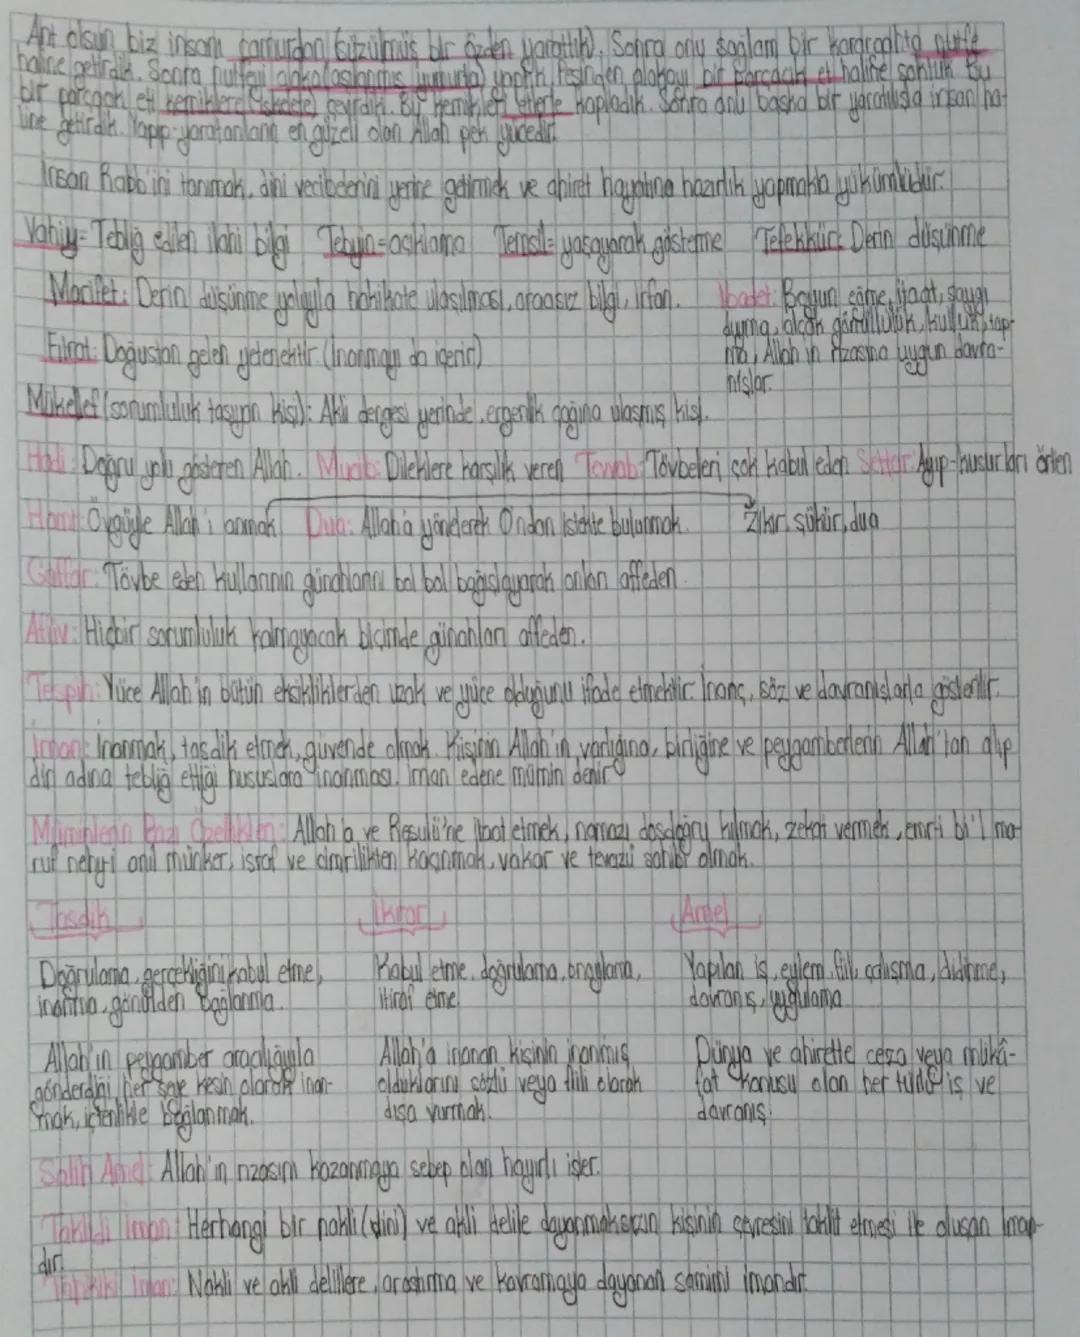 Ant olsun biz insanı çamurdan (süzülmüş bir özden yarattık). Sonra onu sağlam bir karargahta nutfe
haline getirdik. Sonra nutfeyi alakalaşmış (yumurta) yaptık. Peşinden alakayı bir parçacık et haline soktuk. Bu
bir parçacık eti kemiklere (iskelete) çevirdik. Bu kemikleri etlerle kapladık. Sonra onu başka bir yaratılışla insan ha-
line getirdik. Yapıp-yaratanların en güzeli olan Allah pek yücedir.
İnsan Rabb'ini tanımak, dini vecibelerini yerine getirmek ve ahiret hayatına hazırlık yapmakla yükümlüdür.
Vahiy= Tebliğ edilen ilahi bilgi Tebyin=açıklama Temsil= yaşayarak gösterme Tefekkür: Derin düşünme
Marifet: Derin düşünme yoluyla hakikate ulaşılması, aracısız bilgi, irfan. İbadet: Boyun eğme, itaat, saygı
duyma, alçak gönüllülük, kulluk, tap-
Fıtrat: Doğuştan gelen yetenektir. (İnanmayı da içerir) ma, Allah'ın rızasına uygun davra-
nışlar.
Mükellef (sorumluluk taşıyan kişi): Akli dengesi yerinde, ergenlik çağına ulaşmış kişi.
Hadi: Doğru yolu gösteren Allah. Mucib: Dileklere karşılık veren Tevvab: Tövbeleri çok kabul eden Settar: Ayıp-kusurları örten
Hamt: Övgüyle Allah'ı anmak Dua: Allah'a yönelerek O'ndan istekte bulunmak. Zikir, şükür, dua
Gaffar: Tövbe eden kullarının günahlarını bol bol bağışlayarak onları affeden.
Afüv: Hiçbir sorumluluk kalmayacak biçimde günahları affeden.
Tespih: Yüce Allah'ın bütün eksikliklerden uzak ve yüce olduğunu ifade etmektir. İnanç, söz ve davranışlarla gösterilir.
İman: İnanmak, tasdik etmek, güvende olmak. Kişinin Allah'ın varlığına, birliğine ve peygamberlerin Allah'tan alıp
din adına tebliğ ettiği hususlara inanması. İman edene mümin denir
Müminlerin Bazı Özellikleri: Allah'a ve Resulü'ne itaat etmek, namazı dosdoğru kılmak, zekat vermek, emri bi'l ma-
ruf nehyi anil münker, israf ve cimrilikten kaçınmak, vakar ve tevazu sahibi olmak.
Tasdik İkrar Amel
Doğrulama, gerçekliğini kabul etme, Kabul etme, doğrulama, onaylama, Yapılan iş, eylem, fiil, çalışma, didinme,
inanma, gönülden bağlanma. itiraf etme. davranış, uygulama
Allah'ın peygamber aracılığıyla Allah'a inanan kişinin inanmış Dünya ve ahirette ceza veya mükâ-
gönderdiği her şeye kesin olarak inan- olduklarını sözlü veya fiili olarak fat konusu olan her türlü iş ve
mak, içtenlikle bağlanmak. dışa vurmak. davranış.
Salih Amel: Allah'ın rızasını kazanmaya sebep olan hayırlı işler.
Taklidi İman: Herhangi bir nakli (dini) ve akli delile dayanmaksızın kişinin çevresini taklit etmesi ile oluşan iman-
dır.
Tahkiki İman: Nakli ve akli delillere, araştırma ve kavramaya dayanan samimi imandır.